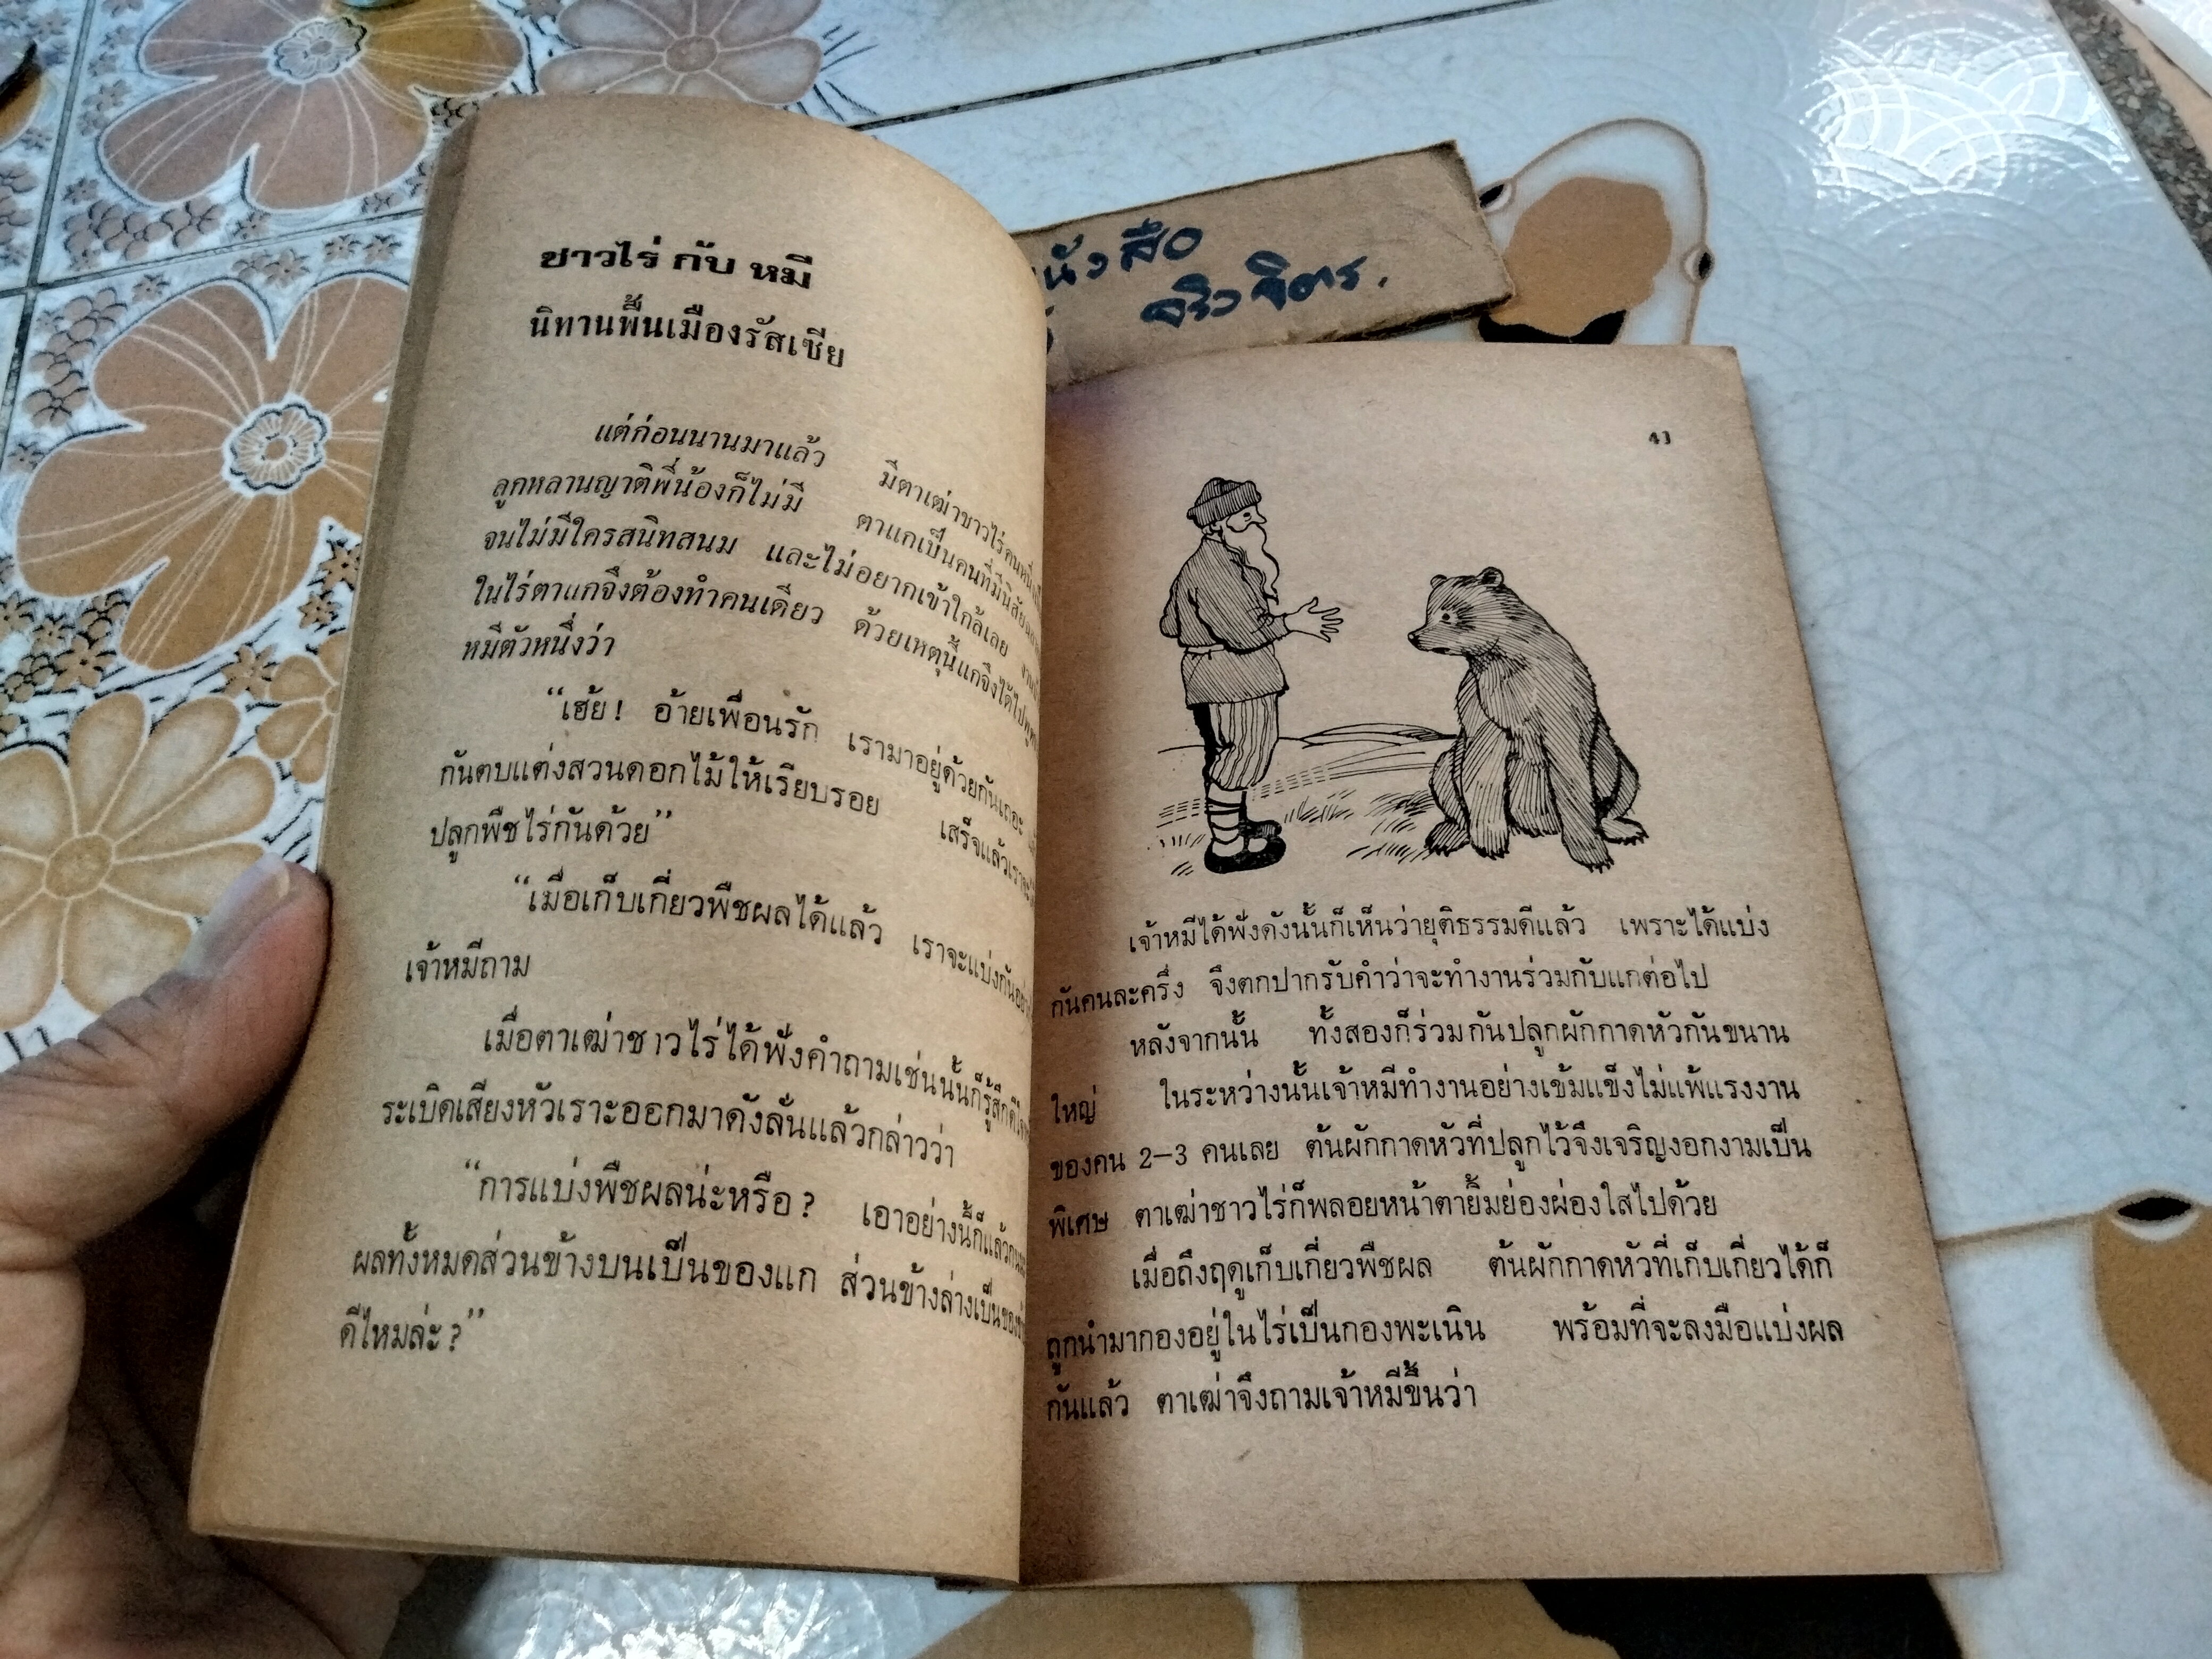 ชาวไร่ กับ หมี
นิทานพื้นเมืองรัสเซีย
แต่ก่อนนานมาแล้ว มีตาเฒ่าชาวไร่คนหนึ่ง
ลูกหลานญาติพี่น้องก็ไม่มี ตาแกเป็นคนที่มีนิสัย
จนไม่มีใครสนิทสนม และไม่อยากเข้าใกล้เลย
ในไร่ตาแกจึงต้องทำคนเดียว ด้วยเหตุนี้แกจึงได้ไป
หมีตัวหนึ่งว่า
“เฮ้ย! อ้ายเพื่อนรัก เรามาอยู่ด้วยกันเถอะ
กันตบแต่งสวนดอกไม้ให้เรียบรอย เสร็จแล้วเราจะ
ปลูกพืชไร่กันด้วย”
“เมื่อเก็บเกี่ยวพืชผลได้แล้ว เราจะแบ่งกัน
เจ้าหมีถาม
เมื่อตาเฒ่าชาวไร่ได้ฟังคำถามเช่นนั้นก็รู้สึก
ระเบิดเสียงหัวเราะออกมาดังลั่นแล้วกล่าวว่า
“การแบ่งพืชผลน่ะหรือ? เอาอย่างนี้ก็แล้วกัน
ผลทั้งหมดส่วนข้างบนเป็นของแก ส่วนข้างล่างเป็น
ดีไหมล่ะ?”
หนังสือ
จริวจิตร.
41
เจ้าหมีได้ฟังดังนั้นก็เห็นว่ายุติธรรมดีแล้ว เพราะได้แบ่ง
กันคนละครึ่ง จึงตกปากรับคำว่าจะทำงานร่วมกับแกต่อไป
หลังจากนั้น ทั้งสองก็ร่วมกันปลูกผักกาดหัวกันขนาน
ใหญ่ ในระหว่างนั้นเจ้าหมีทำงานอย่างเข้มแข็งไม่แพ้แรงงาน
ของคน 2–3 คนเลย ต้นผักกาดหัวที่ปลูกไว้จึงเจริญงอกงามเป็น
พิเศษ ตาเฒ่าชาวไร่ก็พลอยหน้าตายิ้มย่องผ่องใสไปด้วย
เมื่อถึงฤดูเก็บเกี่ยวพืชผล ต้นผักกาดหัวที่เก็บเกี่ยวได้ก็
ถูกนำมากองอยู่ในไร่เป็นกองพะเนิน พร้อมที่จะลงมือแบ่งผล
กันแล้ว ตาเฒ่าจึงถามเจ้าหมีขึ้นว่า